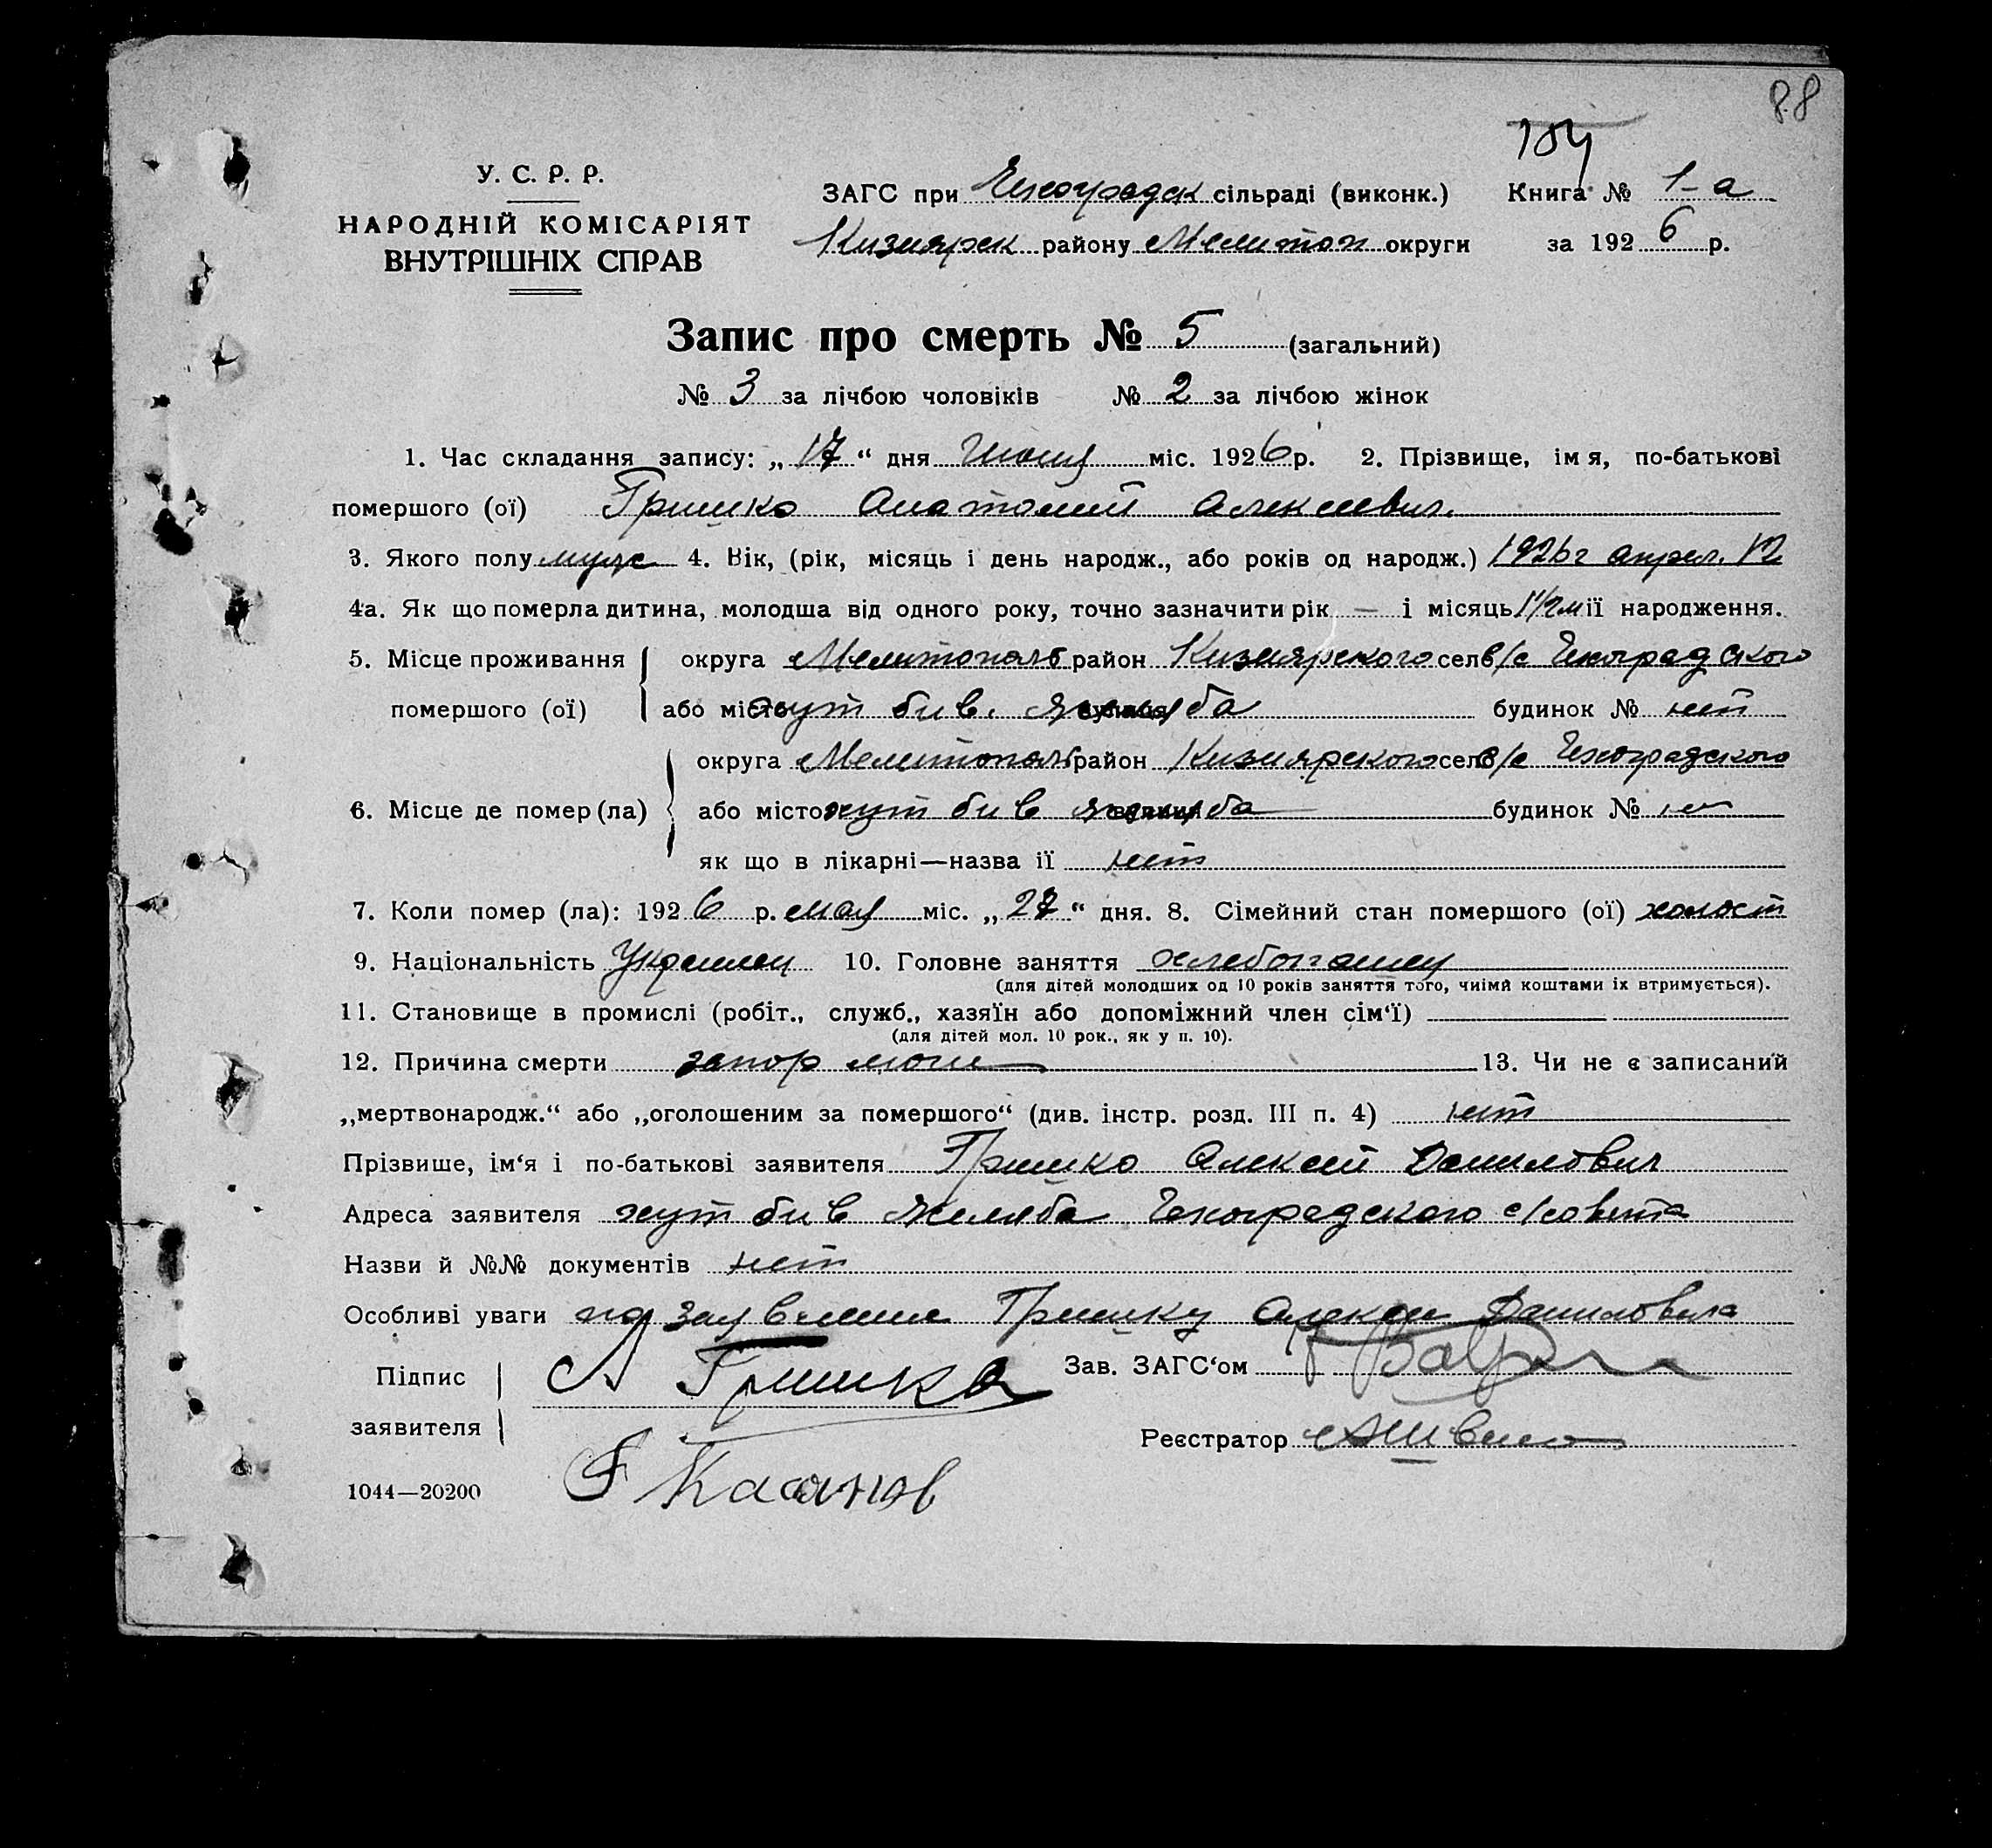 88
104
У. С. Р. Р.
НАРОДНІЙ КОМІСАРІЯТ
ВНУТРІШНІХ СПРАВ
ЗАГС при Чехоградск сільраді (виконк.) Книга № 1-а
Кизиярск району Мелитоп округи за 1926 р.
Запис про смерть № 5 (загальний)
№ 3 за лічбою чоловіків № 2 за лічбою жінок
1. Час складання запису: „17“ дня Июня міс. 1926 р. 2. Прізвище, ім я, по-батькові
помершого (ої) Гришко Анатолий Алексеевич.
3. Якого полу мужс 4. Вік, (рік, місяць і день народж., або років од народж.) 1926 г апрел. 12
4а. Як що померла дитина, молодша від одного року, точно зазначити рік — і місяць 1 1/2 м її народження.
5. Місце проживання округа Мелитополь район Кизиярского село с/с Чехоградского
помершого (ої) або місто хут бив. вулиця будинок № нет
округа Мелитополь район Кизиярского село с/с Чехоградского
6. Місце де помер (ла) або місто хут бив вулиця будинок № нет
як що в лікарні—назва ії нет
7. Коли помер (ла): 1926 р. мая міс. „27“ дня. 8. Сімейний стан помершого (ої) холост
9. Національність Украинец 10. Головне заняття хлебопашец
(для дітей молодших од 10 років заняття того, чиїми коштами їх втримується).
11. Становище в промислі (робіт., служб., хазяїн або допоміжний член сім‘ї)
(для дітей мол. 10 рок., як у п. 10).
12. Причина смерти запор мочи 13. Чи не є записаний
„мертвонародж.“ або „оголошеним за помершого“ (див. інстр. розд. III п. 4) нет
Прізвише, ім‘я і по-батькові заявителя Гришко Алексей Данилович
Адреса заявителя хут бив Чехоградского с/совета
Назви й №№ документів нет
Особливі уваги по заявлению Гришку Алексея Даниловича
Підпис А Гришко Зав. ЗАГС‘ом
заявителя
Реєстратор
1044—20200